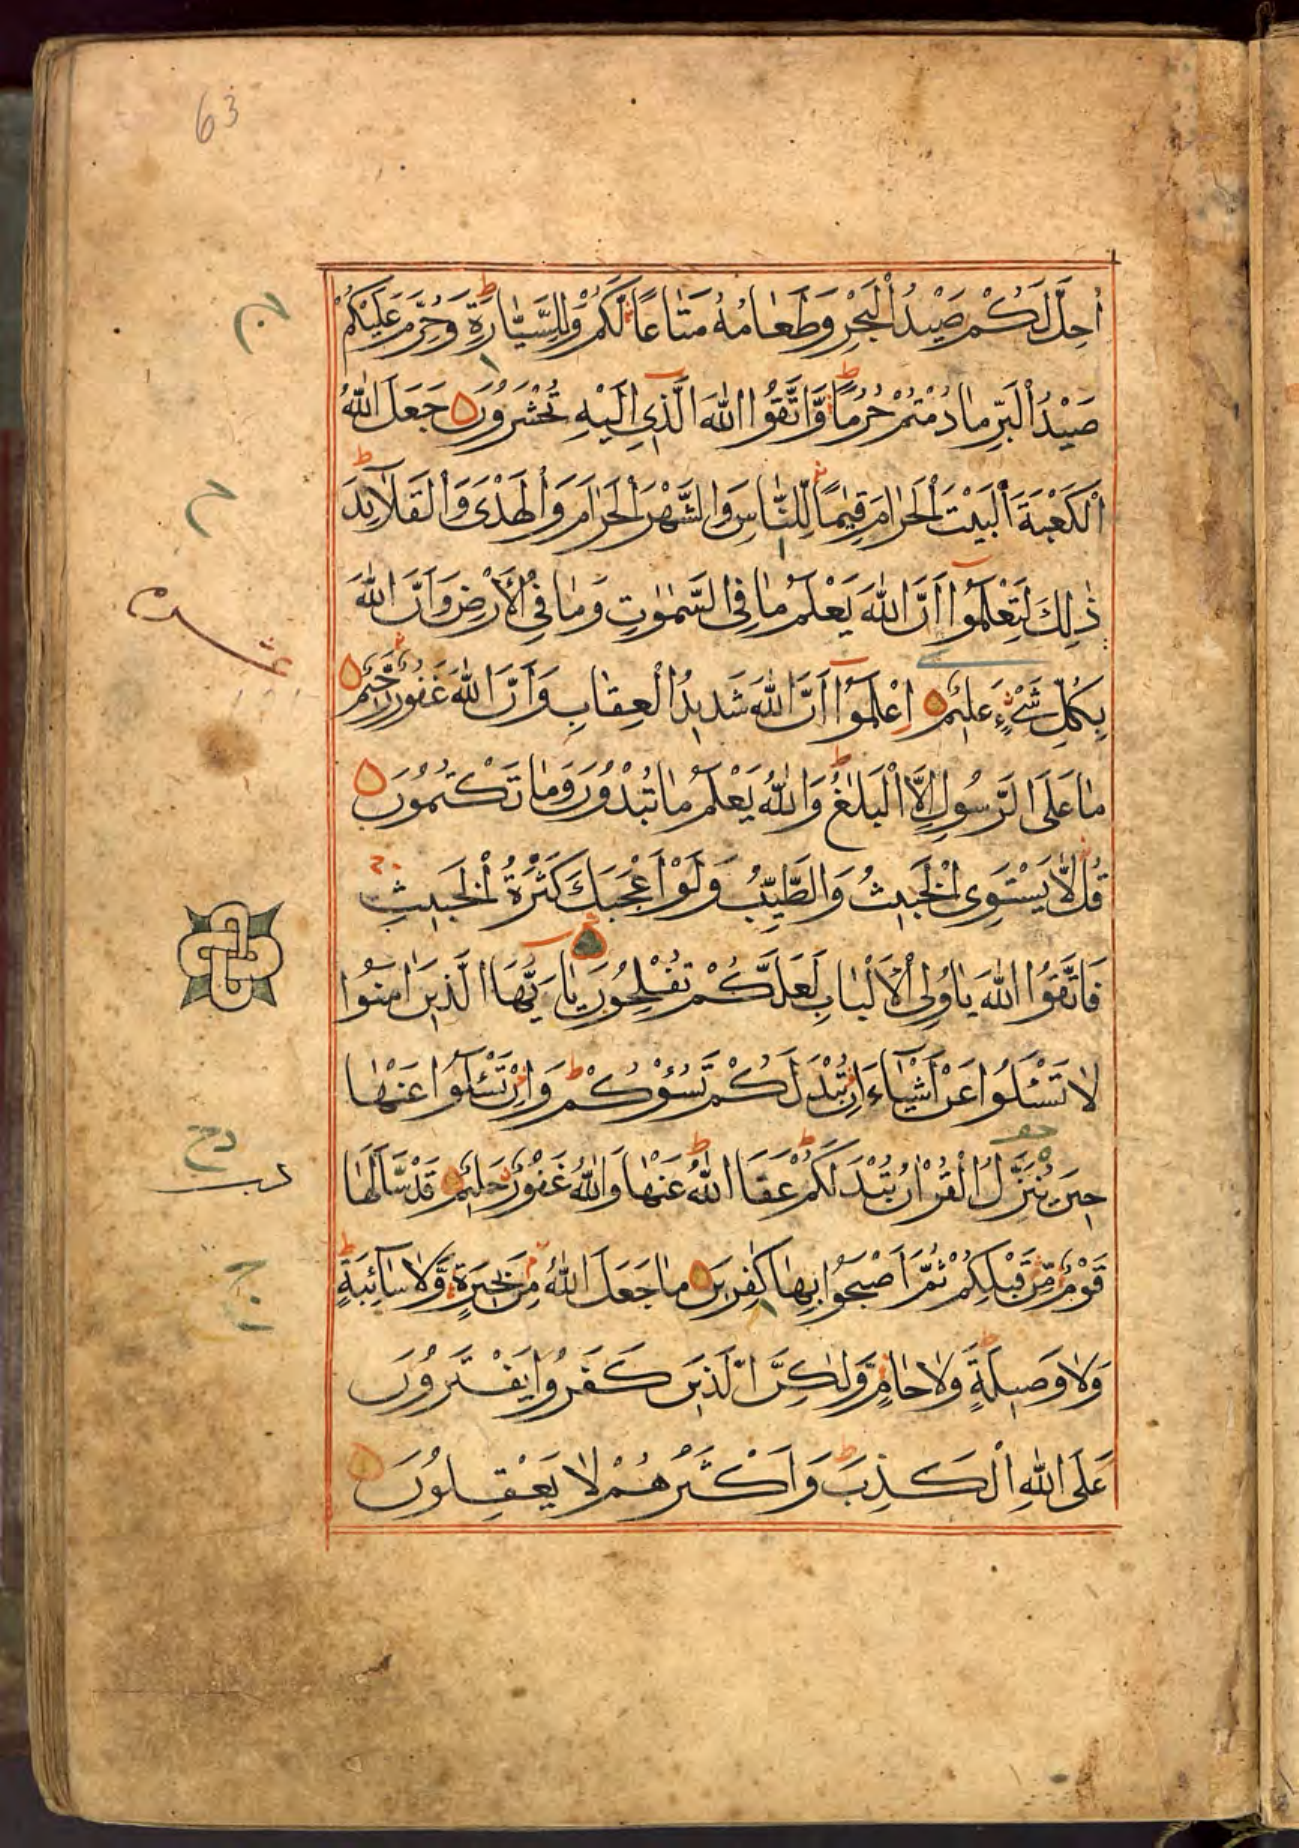 63
اُحِلَّ لَكُمْ صَيْدُ الْبَحْرِ وَطَعَامُهُ مَتَاعًا لَكُمْ وَلِلسَّيَّارَةِ وَحُرِّمَ عَلَيْكُمْ
صَيْدُ الْبَرِّ مَا دُمْتُمْ حُرُمًا وَّاتَّقُوا اللّٰهَ الَّذِي اِلَيْهِ تُحْشَرُونَ جَعَلَ اللّٰهُ
الْكَعْبَةَ الْبَيْتَ الْحَرَامَ قِيٰمًا لِّلنَّاسِ وَالشَّهْرَ الْحَرَامَ وَالْهَدْىَ وَالْقَلَآئِدَ
ذٰلِكَ لِتَعْلَمُوٓا اَنَّ اللّٰهَ يَعْلَمُ مَا فِى السَّمٰوٰتِ وَمَا فِى الْاَرْضِ وَاَنَّ اللّٰهَ
بِكُلِّ شَيْءٍ عَلِيْمٌ اِعْلَمُوٓا اَنَّ اللّٰهَ شَدِيدُ الْعِقَابِ وَاَنَّ اللّٰهَ غَفُورٌ رَّحِيْمٌ
مَا عَلَى الرَّسُولِ اِلَّا الْبَلٰغُ وَاللّٰهُ يَعْلَمُ مَا تُبْدُوْنَ وَمَا تَكْتُمُوْنَ
قُلْ لَّا يَسْتَوِى الْخَبِيْثُ وَالطَّيِّبُ وَلَوْ اَعْجَبَكَ كَثْرَةُ الْخَبِيْثِ
فَاتَّقُوا اللّٰهَ يَا۟ولِى الْاَلْبَابِ لَعَلَّكُمْ تُفْلِحُوْنَ يَآ اَيُّهَا الَّذِيْنَ اٰمَنُوْا
لَا تَسْئَلُوْا عَنْ اَشْيَآءَ اِنْ تُبْدَ لَكُمْ تَسُؤْكُمْ وَاِنْ تَسْئَلُوْا عَنْهَا
حِيْنَ يُنَزَّلُ الْقُرْاٰنُ تُبْدَ لَكُمْ عَفَا اللّٰهُ عَنْهَا وَاللّٰهُ غَفُوْرٌ حَلِيْمٌ قَدْ سَّاَلَهَا
قَوْمٌ مِّنْ قَبْلِكُمْ ثُمَّ اَصْبَحُوْا بِهَا كٰفِرِيْنَ مَا جَعَلَ اللّٰهُ مِنْ بَحِيْرَةٍ وَّلَا سَآئِبَةٍ
وَلَا وَصِيْلَةٍ وَلَا حَامٍ وَّلٰكِنَّ الَّذِيْنَ كَفَرُوْا يَفْتَرُوْنَ
عَلَى اللّٰهِ الْكَذِبَ وَاَكْثَرُهُمْ لَا يَعْقِلُوْنَ